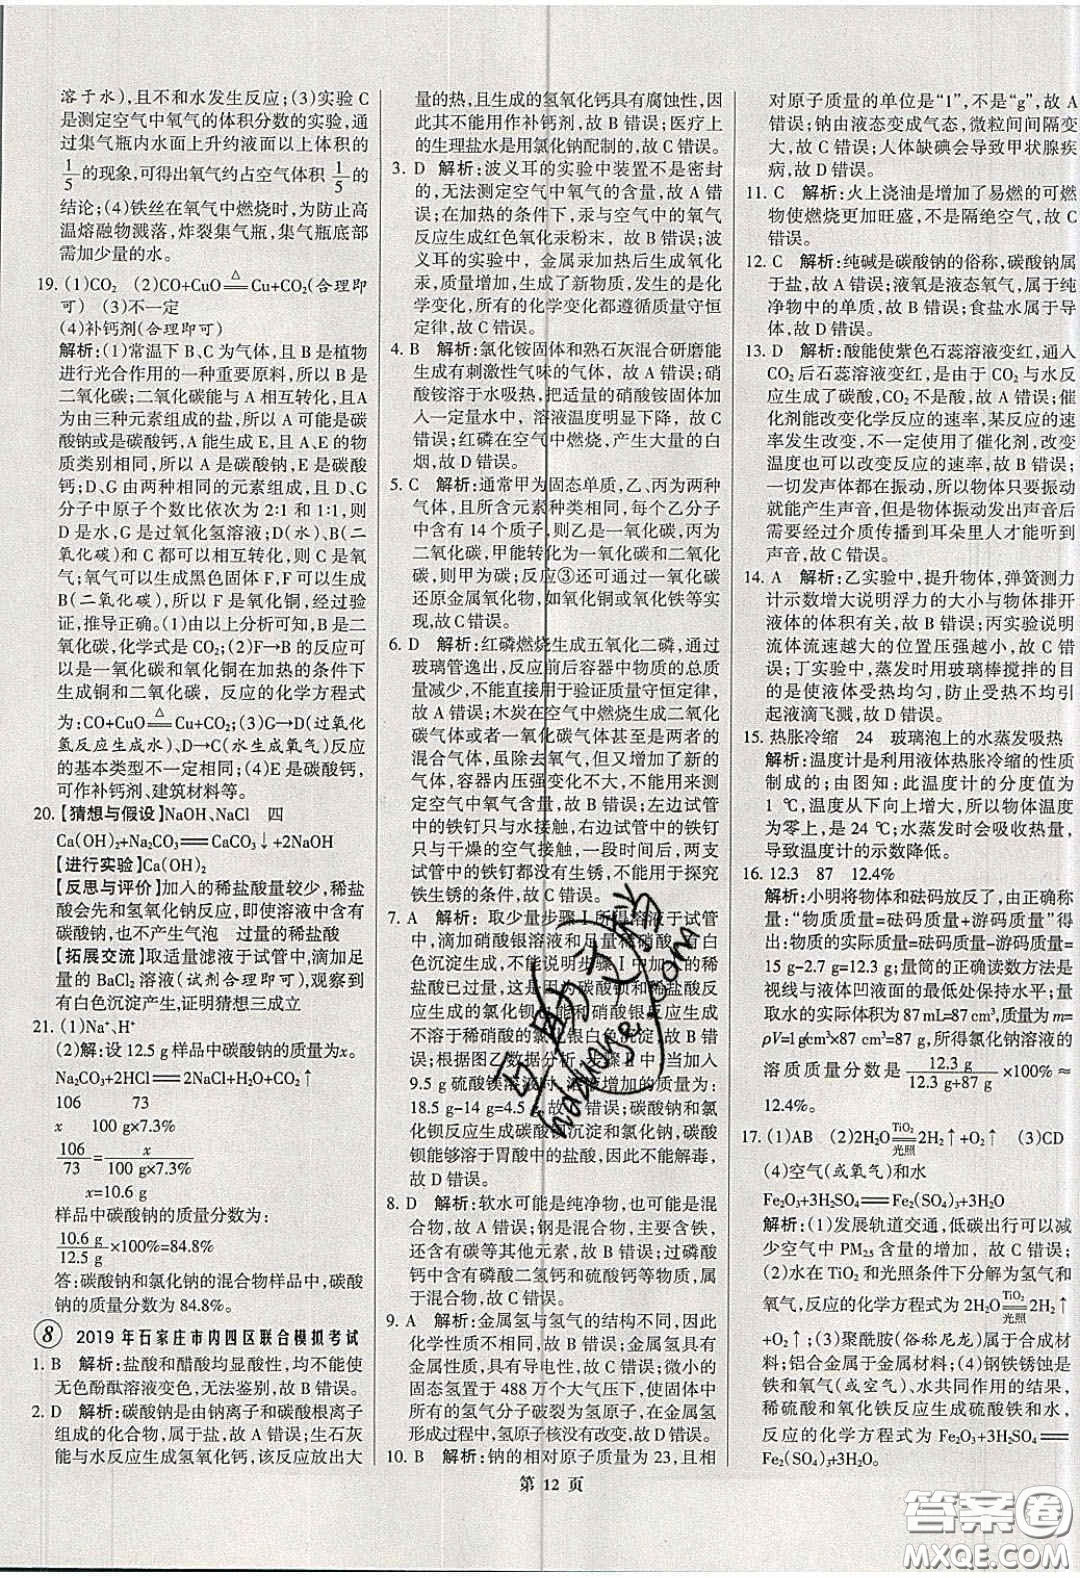 溶于水),且不和水发生反应;(3)实验 C
是测定空气中氧气的体积分数的实验,通
过集气瓶内水面上升约液面以上体积的
1/5 的现象,可得出氧气约占空气体积 1/5 的
结论;(4)铁丝在氧气中燃烧时,为防止高
温熔融物溅落,炸裂集气瓶,集气瓶底部
需加少量的水。
19. (1)CO₂ (2)CO+CuO≜Cu+CO₂(合理即
可) (3)不一定
(4)补钙剂(合理即可)
解析:(1)常温下 B、C 为气体,且 B 是植物
进行光合作用的一种重要原料,所以 B 是
二氧化碳;二氧化碳能与 A 相互转化,且 A
为由三种元素组成的盐,所以 A 可能是碳
酸钠或是碳酸钙,A 能生成 E,且 A、E 的物
质类别相同,所以 A 是碳酸钠,E 是碳酸
钙;D、G 由两种相同的元素组成,且 D、G
分子中原子个数比依次为 2:1 和 1:1,所以
D 是水,G 是过氧化氢溶液;D(水)、B(二
氧化碳)和 C 都可以相互转化,则 C 是氧
气;氧气可以生成黑色固体 F,F 可以生成
B(二氧化碳),所以 F 是氧化铜,经过验
证,推导正确。(1)由以上分析可知,B 是二
氧化碳,化学式是 CO₂;(2)F→B 的反应可
以是一氧化碳和氧化铜在加热的条件下
生成铜和二氧化碳,反应的化学方程式
为:CO+CuO≜Cu+CO₂;(3)G→D(过氧化
氢反应生成水)、D→C(水生成氧气)反应
的基本类型不一定相同;(4)E 是碳酸钙,
可作补钙剂、建筑材料等。
20.【猜想与假设】NaOH、NaCl 四
Ca(OH)₂+Na₂CO₃═CaCO₃↓+2NaOH
【进行实验】Ca(OH)₂
【反思与评价】加入的稀盐酸量较少,稀盐
酸会先和氢氧化钠反应,即使溶液中含有
碳酸钠,也不产生气泡 过量的稀盐酸
【拓展交流】取适量滤液于试管中,滴加足
量的 BaCl₂ 溶液(试剂合理即可),观察到
有白色沉淀产生,证明猜想三成立
21. (1)Na⁺、H⁺
(2)解:设 12.5 g 样品中碳酸钠的质量为x。
Na₂CO₃+2HCl═2NaCl+H₂O+CO₂↑
106 73
x 100 g×7.3%
106/73=x/(100 g×7.3%)
x=10.6 g
样品中碳酸钠的质量分数为:
10.6 g/12.5 g×100%=84.8%
答:碳酸钠和氯化钠的混合物样品中,碳酸
钠的质量分数为 84.8%。
8 2019 年石家庄市内四区联合模拟考试
1. B 解析:盐酸和醋酸均显酸性,均不能使
无色酚酞溶液变色,无法鉴别,故 B 错误。
2. D 解析:碳酸钠是由钠离子和碳酸根离子
组成的化合物,属于盐,故 A 错误;生石灰
能与水反应生成氢氧化钙,该反应放出大
量的热,且生成的氢氧化钙具有腐蚀性,因
此其不能用作补钙剂,故 B 错误;医疗上
的生理盐水是用氯化钠配制的,故 C 错误。
3. D 解析:波义耳的实验中装置不是密封
的,无法测定空气中氧气的含量,故 A 错
误;在加热的条件下,汞与空气中的氧气
反应生成红色氧化汞粉末,故 B 错误;波
义耳的实验中,金属汞加热后生成氧化
汞,质量增加,生成了新物质,发生的是化
学变化,所有的化学变化都遵循质量守恒
定律,故 C 错误。
4. B 解析:氯化铵固体和熟石灰混合研磨能
生成有刺激性气味的气体,故 A 错误;硝
酸铵溶于水吸热,把适量的硝酸铵固体加
入一定量水中,溶液温度明显下降,故 C
错误;红磷在空气中燃烧,产生大量的白
烟,故 D 错误。
5. C 解析:通常甲为固态单质,乙、丙为两种
气体,且所含元素种类相同,每个乙分子
中含有 14 个质子,则乙是一氧化碳,丙为
二氧化碳,甲能转化为一氧化碳和二氧化
碳,甲是碳;反应③还可通过一氧化碳
还原金属氧化物,如氧化铜或氧化铁等实
现,故 C 错误。
6. D 解析:红磷燃烧生成五氧化二磷,由于
玻璃管逸出,反应前后容器中物质的总质
量减少,不能直接用于验证质量守恒定律,
故 A 错误;木炭在空气中燃烧生成二氧化
碳气体或者一氧化碳气体甚至是两者的
混合气体,虽然反应中消耗了氧气,但又
生成了气体,容器内压强变化不大,不能用来
测定空气中氧气含量,故 B 错误;左边试管中
的铁钉只与水接触,右边试管中的铁钉只
与干燥的空气接触,一段时间后,两支
试管中的铁钉都没有生锈,不能用于探究
铁生锈的条件,故 C 错误。
7. A 解析:取少量步骤Ⅰ所得溶液于试管
中,滴加硝酸银溶液和足量稀硝酸,有白
色沉淀生成,不能说明步骤Ⅰ中滴加的稀
盐酸已过量,这是因为碳酸钡和稀盐酸反
应生成的氯化钡能和硝酸银反应生成
不溶于稀硝酸的氯化银白色沉淀,故 B 错
误;根据图乙数据分析,步骤Ⅱ中,当加入
9.5 g 硫酸镁溶液时,溶液增加的质量为:
18.5 g-14 g=4.5 g,故 C 错误;碳酸钠和氯
化钡反应生成碳酸钡沉淀和氯化钠,碳酸
钡能够溶于胃酸中的盐酸,因此不能解毒,
故 D 错误。
8. D 解析:软水可能是纯净物,也可能是混
合物,故 A 错误;钢是混合物,主要含铁,
还含有碳等其他元素,故 B 错误;过磷酸
钙中含有磷酸二氢钙和硫酸钙等物质,属
于混合物,故 C 错误。
9. A 解析:金属氢与氢气的组成元素相同,
但是组成结构不同,故 B 错误;金属氢具有
金属性,具有导电性,故 C 错误;微小的
固态氢置于 488 万个大气压下,使成对组
合的氢气分子破裂为氢原子,在金属氢
形成过程中,氢原子核没有改变,故 D 错误。
10. B 解析:钠的相对原子质量为 23,且相
对原子质量的单位是“1”,不是“g”,故 A
错误;钠由液态变成气态,微粒间间隔变
大,故 C 错误;人体缺碘会导致甲状腺疾
病,故 D 错误。
11. C 解析:火上浇油是增加了易燃的可燃
物使燃烧更加旺盛,不是隔绝空气,故 C
错误。
12. C 解析:纯碱是碳酸钠的俗称,碳酸钠属
于盐,故 A 错误;液氧是液态氧气,属于纯
净物中的单质,故 B 错误;食盐水属于导
体,故 D 错误。
13. D 解析:酸能使紫色石蕊溶液变红,通入
CO₂ 后石蕊溶液变红,是由于 CO₂ 与水反
应生成了碳酸,CO₂ 不是酸,故 A 错误;催
化剂能改变化学反应的速率,某反应的速
率发生改变,不一定使用了催化剂,改变
温度也可以改变反应的速率,故 B 错误;
一切发声体都在振动,所以物体只要振动
就能产生声音,但物体振动发出声音后
需要经过介质传播到耳朵里人才能听到
声音,故 C 错误。
14. A 解析:乙实验中,提升物体,弹簧测力
计示数增大说明浮力的大小与物体排开
液体的体积有关,故 B 错误;丙实验说明
流体流速越大的位置压强越小,故 C 错
误;丁实验中,蒸发时用玻璃棒搅拌的目
的是使液体受热均匀,防止受热不均引
起液滴飞溅,故 D 错误。
15. 热胀冷缩 24 玻璃泡上的水蒸发吸热
解析:温度计是利用液体热胀冷缩的性质
制成的;由图知:此温度计的分度值为
1 ℃,温度从下向上增大,所以物体温度
为零上,是 24 ℃;水蒸发时会吸收热量,
导致温度计的示数降低。
16. 12.3 87 12.4%
解析:小明将物体和砝码放反了,由正确称
量:“物质质量=砝码质量+游码质量”得
出:物质的实际质量=砝码质量-游码质量=
15 g-2.7 g=12.3 g;量筒的正确读数方法是
视线与液体凹液面的最低处保持水平;量
取水的实际体积为 87 mL=87 cm³,质量为 m=
ρV=1 g/cm³×87 cm³=87 g,所得氯化钠溶液的
溶质质量分数是 12.3 g/(12.3 g+87 g)×100%≈
12.4%。
17. (1)AB (2)2H₂O TiO₂═光照 2H₂↑+O₂↑ (3)CD
(4)空气(或氧气)和水
Fe₂O₃+3H₂SO₄═Fe₂(SO₄)₃+3H₂O
解析:(1)发展轨道交通,低碳出行可以减
少空气中 PM₂.₅ 含量的增加,故 C、D 错误;
(2)水在 TiO₂ 和光照条件下分解为氢气和
氧气,反应的化学方程式为 2H₂O TiO₂═光照
2H₂↑+O₂↑;(3)聚酰胺(俗称尼龙)属于合成材
料;铝合金属于金属材料;(4)钢铁锈蚀是
铁和氧气(或空气)、水共同作用的结果,
稀硫酸和氧化铁反应生成硫酸铁和水,
反应的化学方程式为 Fe₂O₃+3H₂SO₄═
Fe₂(SO₄)₃+3H₂O。
第 12 页
答案圈
MXQE.COM